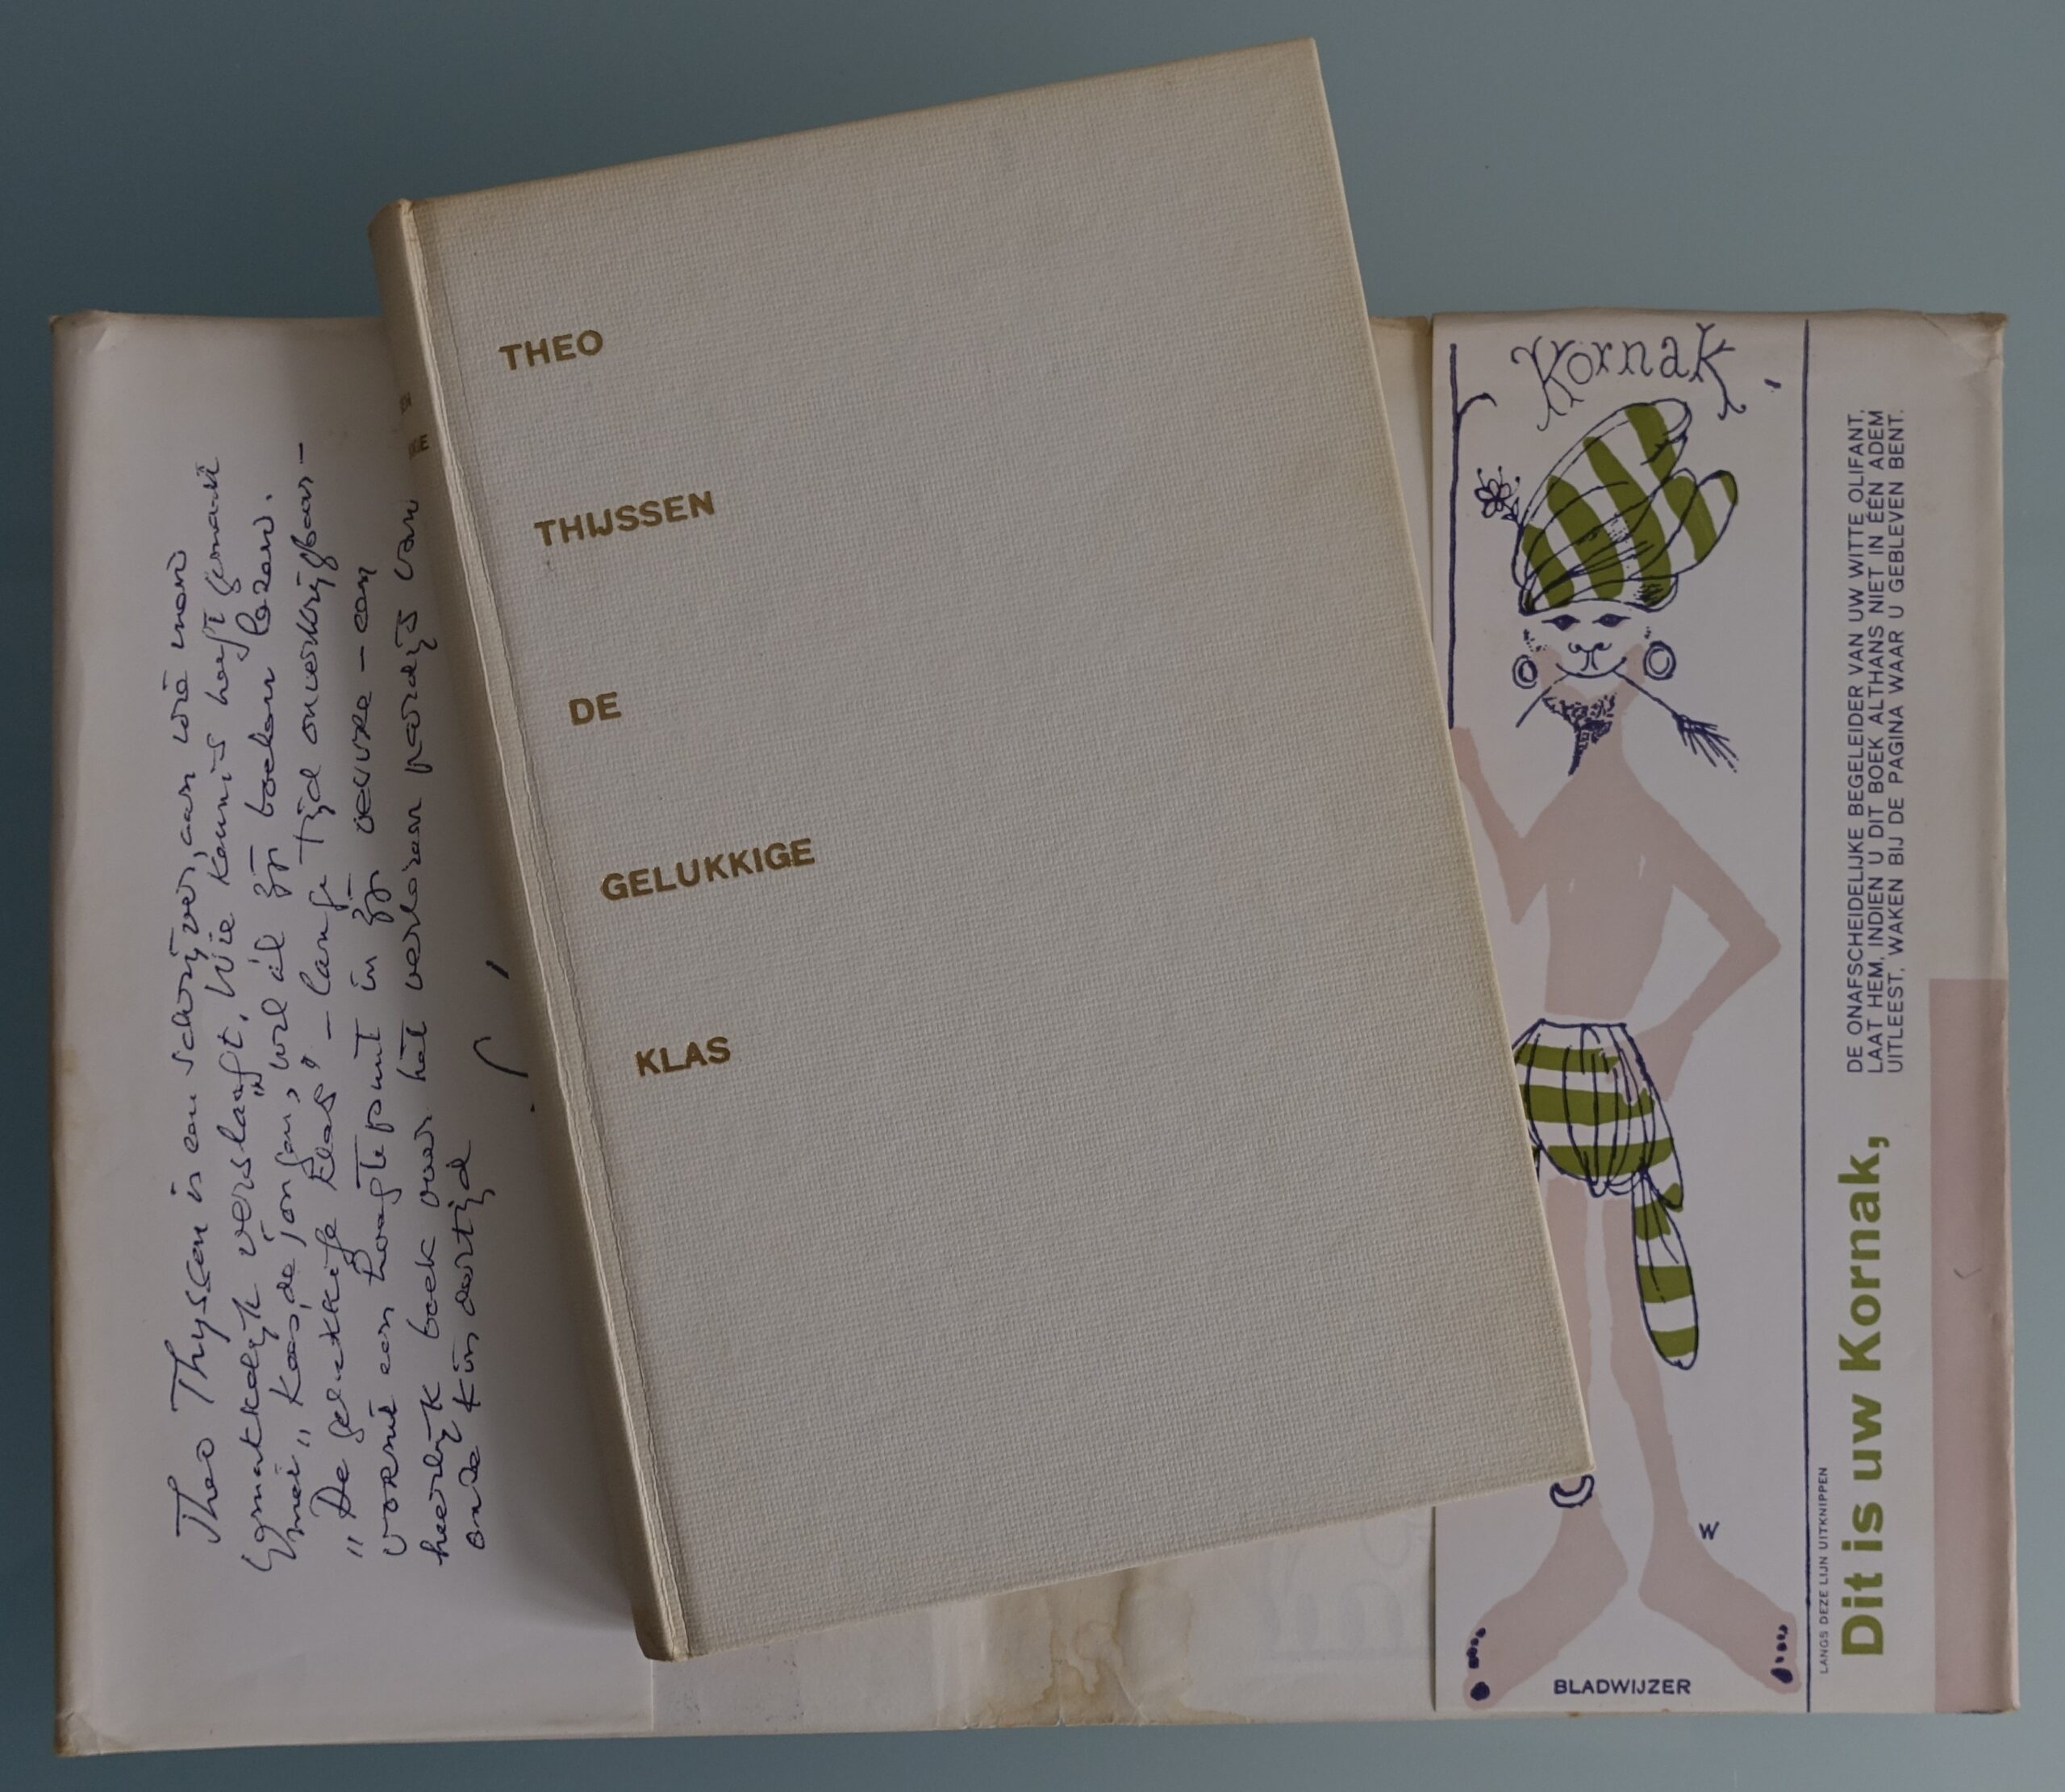 THEO
THIJSSEN
DE
GELUKKIGE
KLAS
Theo Thyssen is een schrijver, aan wie men
gemakkelijk verslaaft. Wie kennis heeft gemaakt
met „Kees, de jongen”, wil ál zijn boeken lezen.
„De gelukkige klas” – lange tijd onverkrijgbaar –
vormt een hoogtepunt in zijn oeuvre – een
heerlijk boek over het verloren paradijs van
onze kindertijd
Kornak
W
BLADWIJZER
LANGS DEZE LIJN UITKNIPPEN
Dit is uw Kornak,
DE ONAFSCHEIDELIJKE BEGELEIDER VAN UW WITTE OLIFANT,
LAAT HEM, INDIEN U DIT BOEK ALTHANS NIET IN ÉÉN ADEM
UITLEEST, WAKEN BIJ DE PAGINA WAAR U GEBLEVEN BENT.